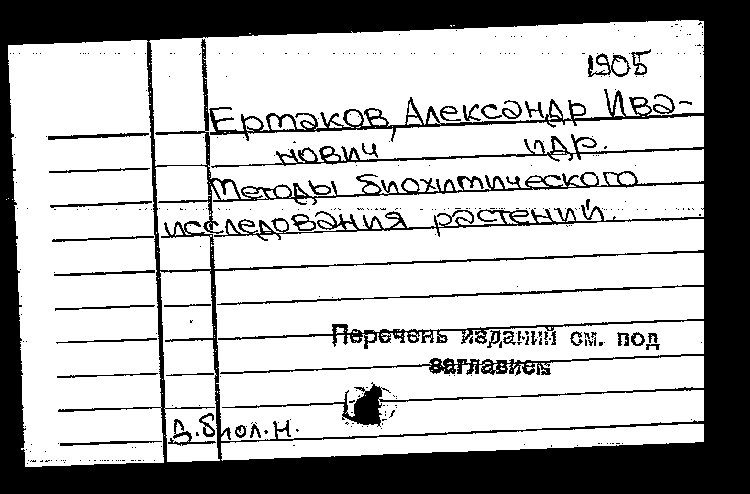 1905
Ермаков, Александр Ива-
нович и др.
Методы биохимического
исследования растений.
Перечень изданий см. под
заглавием
д.биол.н.